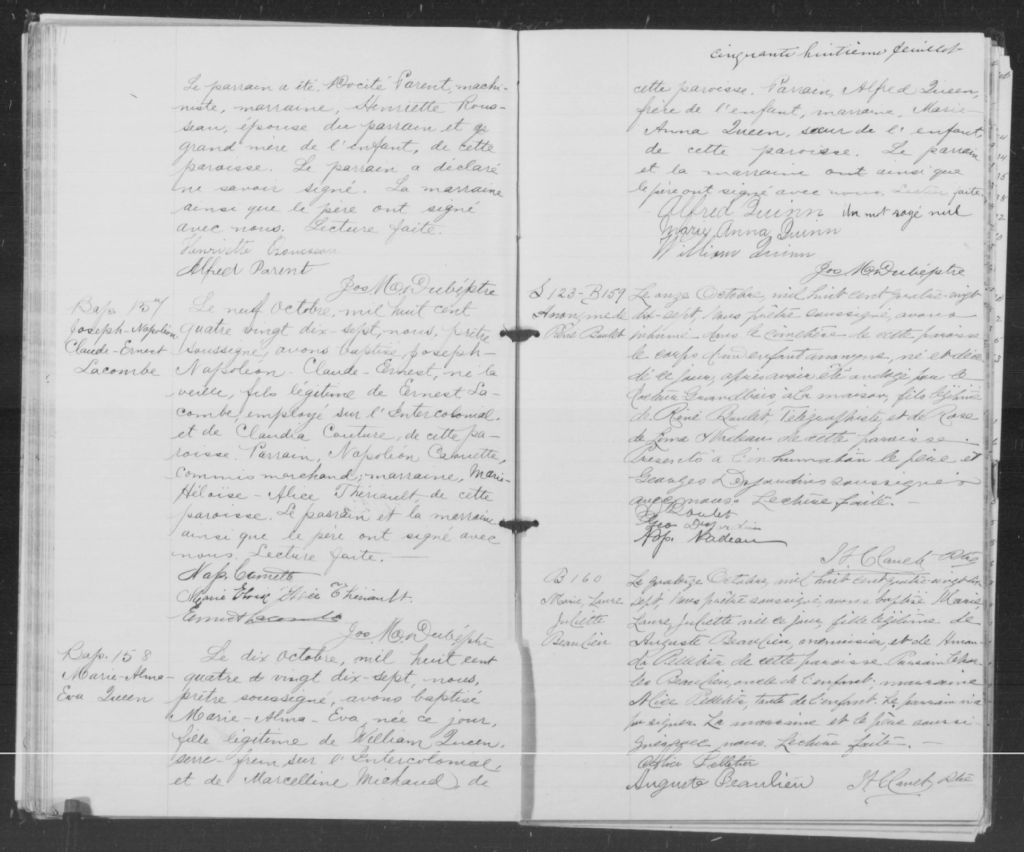 Le parrain a été Docité Parent, machi-
niste, marraine, Henriette Rous-
seau, épouse du parrain et
grand'mère de l'enfant, de cette
paroisse. Le parrain a déclaré
ne savoir signé. La marraine
ainsi que le père ont signé
avec nous. Lecture faite.
Henriette
Alfred Parent
Jos M Dubé ptre
Bap. 157
Joseph-Napoléon
Claude-Ernest
Lacombe
Le neuf Octobre, mil huit cent
quatre vingt dix-sept, nous, prêtre
soussigné, avons baptisé, Joseph-
Napoléon-Claude-Ernest, né la
veille, fils légitime de Ernest La-
combe, employé sur l'Intercolonial
et de Claudia Couture, de cette pa-
roisse. Parrain, Napoléon
commis marchand; marraine, Marie-
Héloïse-Alice Thériault de cette
paroisse. Le parrain et la marraine
ainsi que le père ont signé avec
nous. Lecture faite.
Nap.
Marie Alice Thériault.
Ernest Lacombe
Jos M Dubé ptre
Bap. 158
Marie-Alma-
Eva Queen
Le dix Octobre, mil huit cent
quatre vingt dix-sept, nous,
prêtre soussigné, avons baptisé
Marie-Alma-Eva, née ce jour,
fille légitime de William Queen,
serre-frein sur l'Intercolonial,
et de Marcelline Michaud, de
cinquante huitième feuillet
cette paroisse. Parrain, Alfred Queen,
frère de l'enfant, marraine, Marie-
Anna Queen, sœur de l'enfant,
de cette paroisse. Le parrain
et la marraine ont ainsi que
le père ont signé avec nous. Lecture faite.
Alfred Quinn un mot rayé nul
Mary Anna Quinn
William Quinn
Jos M Dubé ptre
S 123-B159
Anonyme de
René Boulet
Le onze Octobre, mil huit cent quatre-vingt
dix-sept, Nous prêtre soussigné, avons
inhumé dans le cimetière de cette paroisse
le corps d'un enfant anonyme, né et décé-
dé ce jour, après avoir été ondoyé par le
à la maison, fils légitime
de René Boulet, Télégraphiste, et de Rose
de Lima de cette paroisse.
Présents à l'inhumation le père et
Georges Desjardins soussignés
avec nous. Lecture faite.
R Boulet
Geo Desjardins
Nap. Nadeau
Ptre
B 160
Marie, Laure
Juliette
Beaulieu
Le quatorze Octobre, mil huit cent quatre-vingt dix
sept, Nous prêtre soussigné, avons baptisé Marie
Laure Juliette née ce jour, fille légitime de
Auguste Beaulieu, menuisier, et de Aman-
da Pelletier de cette paroisse. Parrain
Beaulieu, oncle de l'enfant. marraine
Alice Pelletier, tante de l'enfant. Le parrain n'a
pu signer. La marraine et le père soussi-
gnés avec nous. Lecture faite.
Alice Pelletier
Auguste Beaulieu
Ptre